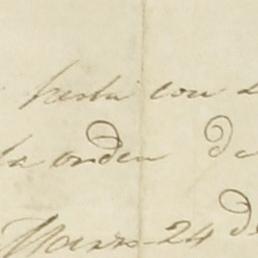 con
la orden de
Marzo 24 de